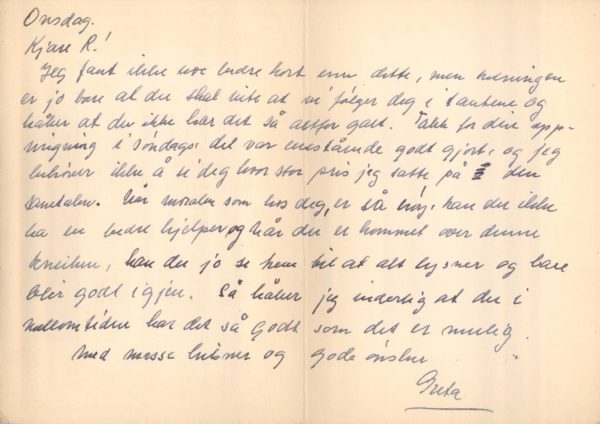 Onsdag.
Kjære R.!
Jeg fant ikke noe bedre kort enn dette, men meningen
er jo bare at du skal vite at vi følger deg i tankene og
håper at du ikke har det så altfor galt. Takk for din opp-
ringning i søndags: det var enestående godt gjort, og jeg
behøver ikke å si deg hvor stor pris jeg satte på den
samtalen. Når moralen som hos deg, er så høy, kan du ikke
ha en bedre hjelper og når du er kommet over denne
kneiken, kan du jo se frem til at alt lysner og bare
blir godt igjen. Så håper jeg inderlig at du i
mellomtiden har det så godt som det er mulig.
Med masse hilsner og gode ønsker
Greta